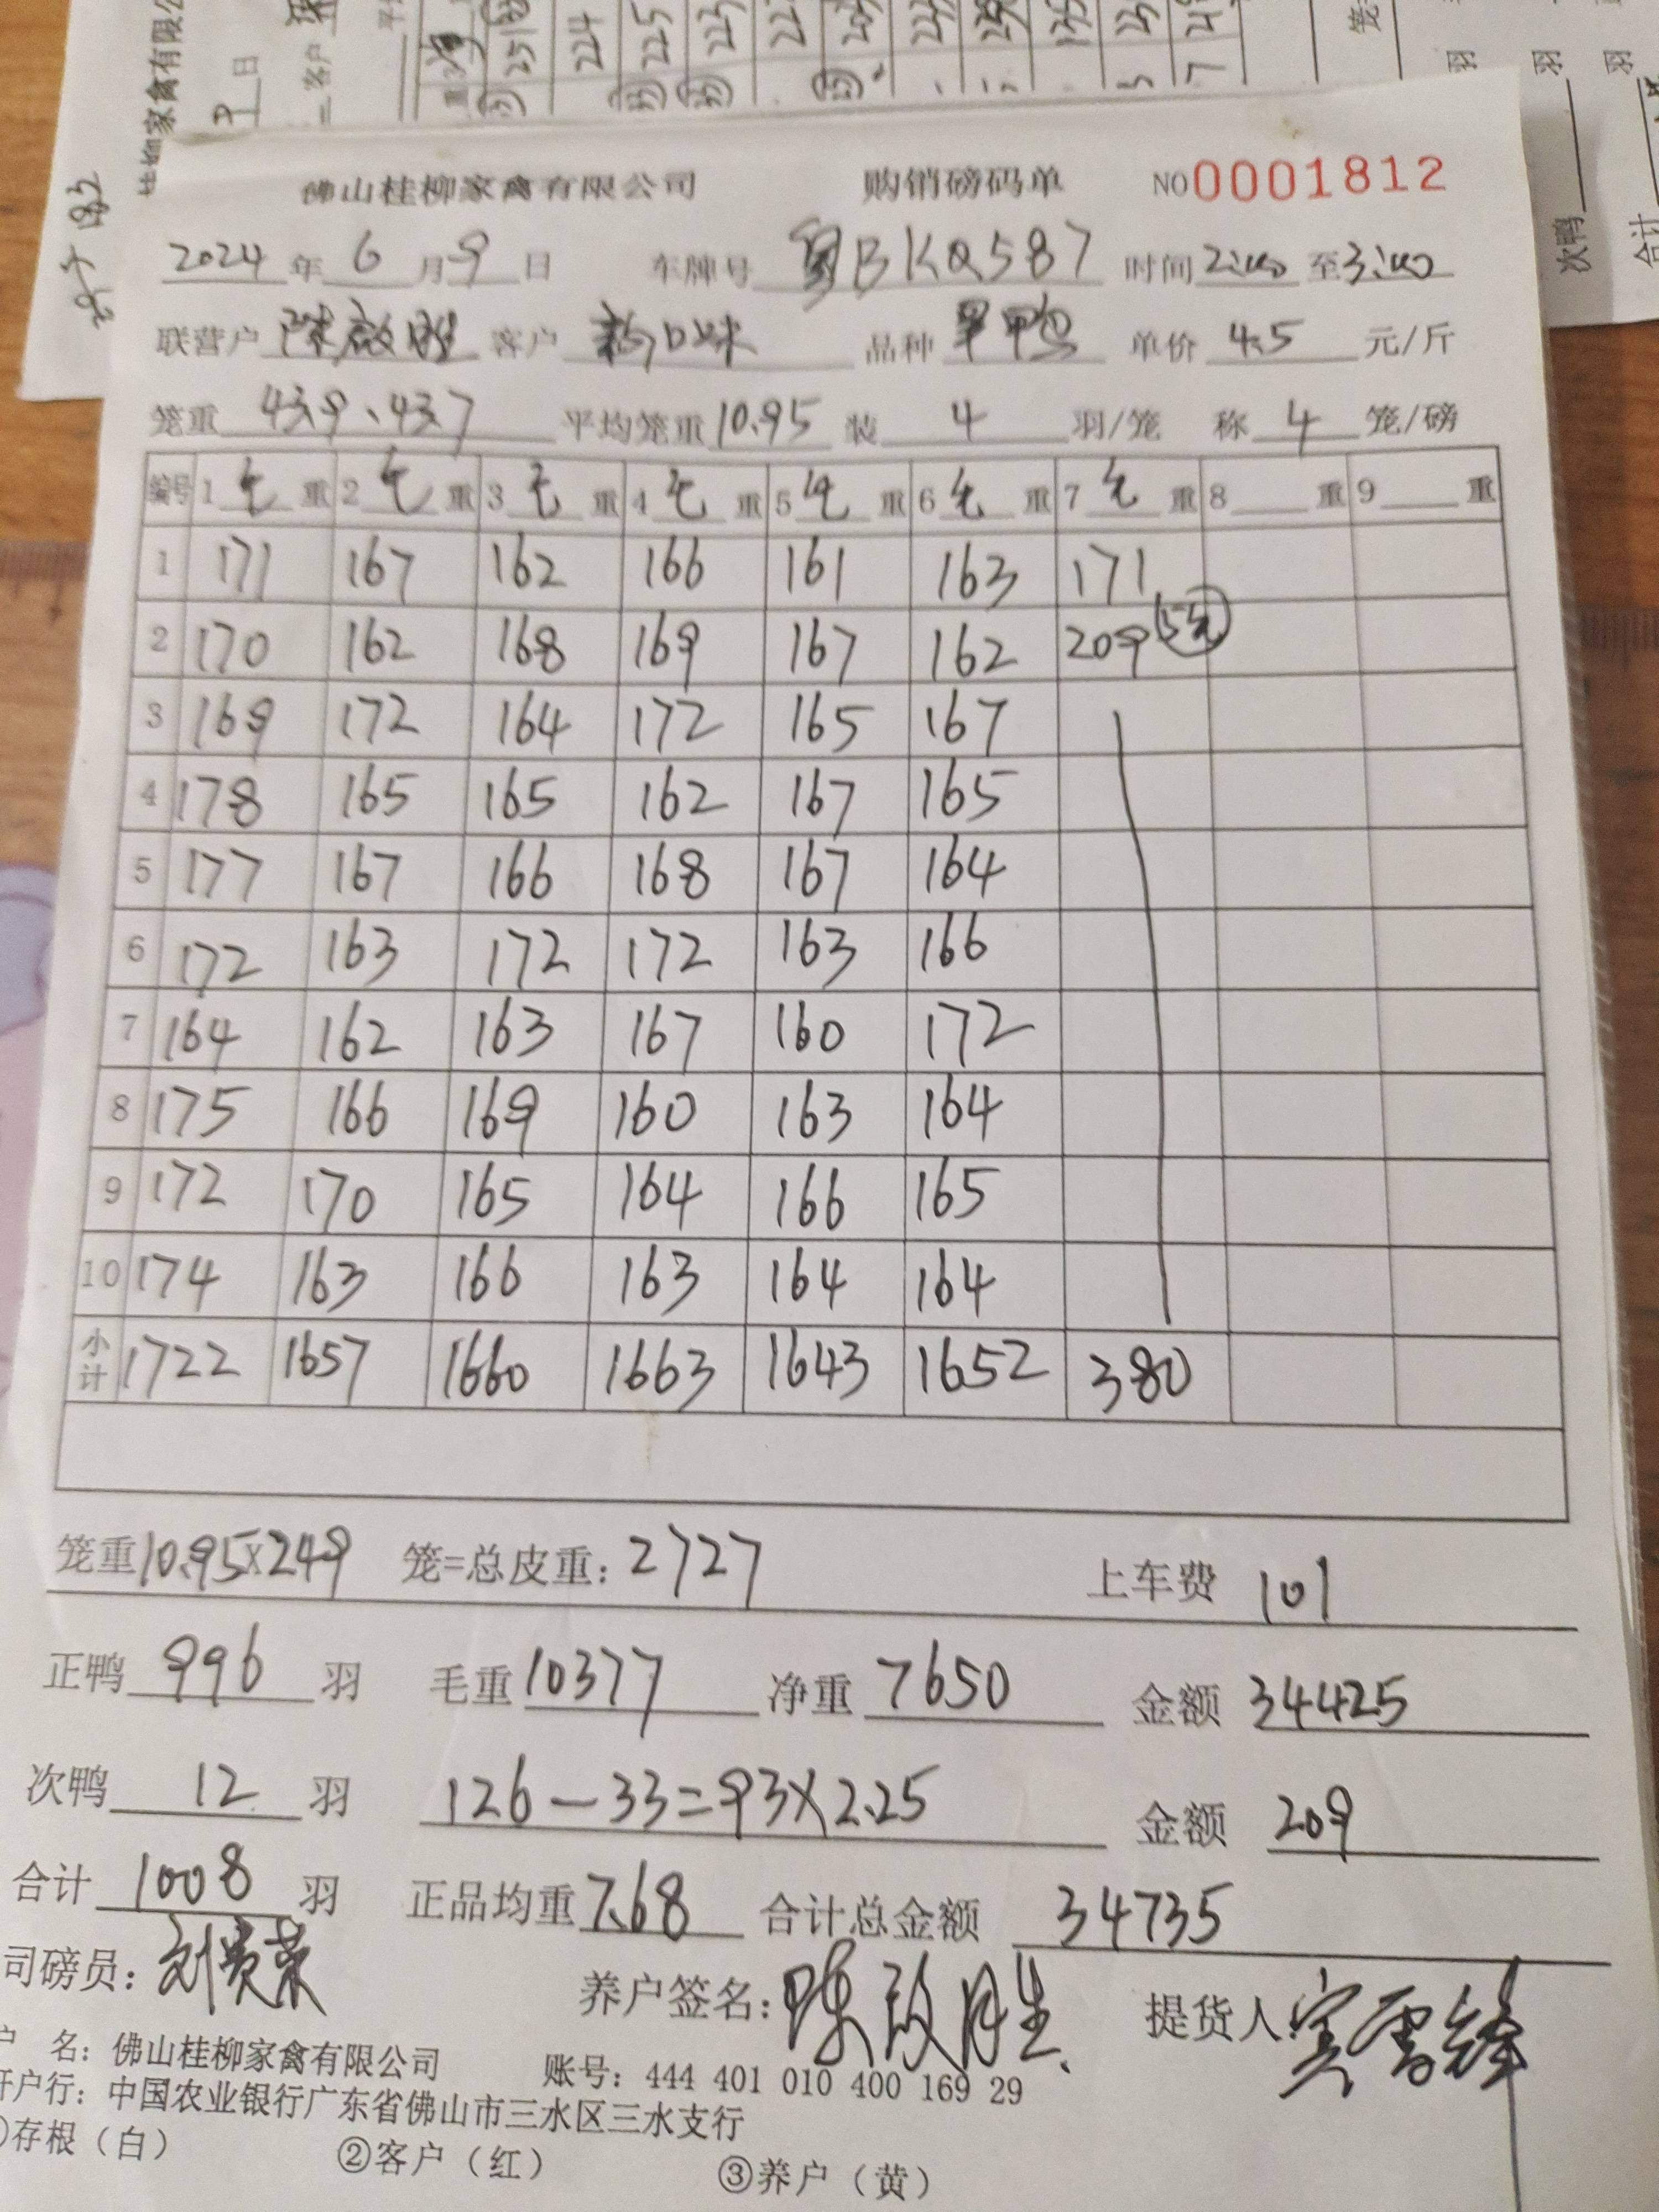 佛山桂柳家禽有限公司 购销磅码单 NO0001812
2024年6月9日 车牌号 粤BKQ587 时间2:00至3:00
联营户 客户 新口味 品种 单价 4.5 元/斤
笼重 43.9、43.7 平均笼重10.95 装 4 羽/笼 称 4 笼/磅
编号 1 毛 重 2 毛 重 3 毛 重 4 毛 重 5 毛 重 6 毛 重 7 毛 重 8 重 9 重
1 171 167 162 166 161 163 171
2 170 162 168 169 167 162 209 5笼
3 169 172 164 172 165 167
4 178 165 165 162 167 165
5 177 167 166 168 167 164
6 172 163 172 172 163 166
7 164 162 163 167 160 172
8 175 166 169 160 163 164
9 172 170 165 164 166 165
10 174 163 166 163 164 164
小计 1722 1657 1660 1663 1643 1652 380
笼重10.95X249 笼=总皮重: 2727 上车费 101
正鸭 996 羽 毛重10377 净重 7650 金额 34425
次鸭 12 羽 126-33=93X2.25 金额 209
合计 1008 羽 正品均重7.68 合计总金额 34735
司磅员: 刘贵荣 养户签名: 提货人
户 名: 佛山桂柳家禽有限公司 账号: 444 401 010 400 169 29
开户行: 中国农业银行广东省佛山市三水区三水支行
①存根（白） ②客户（红） ③养户（黄）